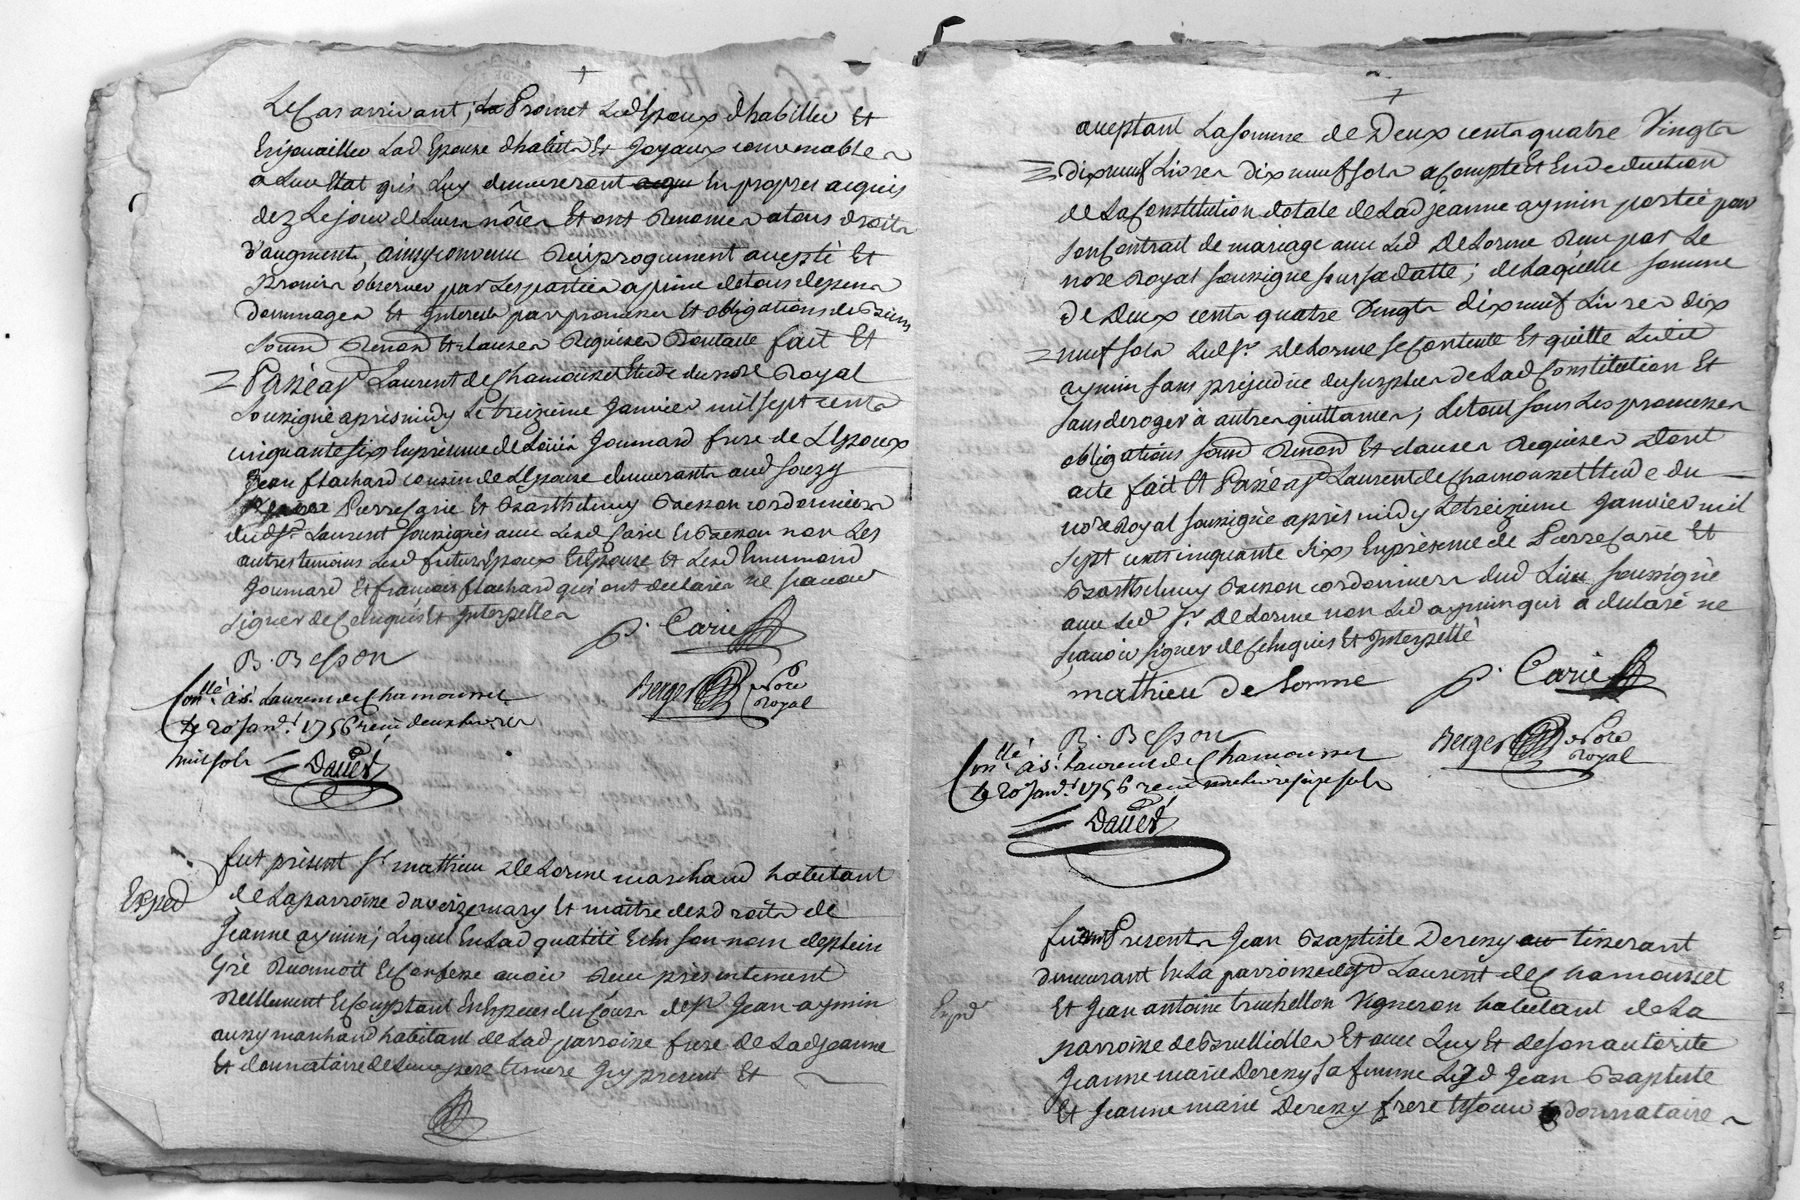 Le Cas arrivant, Promet Led Epoux d'habiller Et
Enjouailler Lad Epouse d'habits Et Joyaux convenables
a Leur Etat qui Luy demeureront En propres acquis
dez Le jour de Leurs nôces Et ont Renoncé a tous droits
d'augment, ainsy convenu Reciproquement accepté Et
Promis observer par Les parties a peine de tous depens
dommages Et Interests par promesses Et obligations de Biens
Soum Renon Et clauses Requises Dontacte fait Et
Passé a St Laurent de Chamousset Etude du no.re Royal
Soussigné apres midy Le treizieme Janvier mil sept cents
cinquante six En présence de Joumard frere de L'Epoux
Jean flachard cousin de L'Epouse demeurants aud Souzy
Pierre Carie Et Barthelemy Besson cordonniers
dud St. Laurent soussignés avec Lesd Carie Et Besson non Les
autres temoins Lesd futurs Epoux Et Epouse Et Lesd
Joumard Et françois flachard qui ont declaré ne sçavoir
signer de Ce Enquis Et Interpellés
P. Carie
B. Besson
Berger no.re Royal
Con.llé a St. Laurent de Chamousset
Le 20 Janv.r 1756 receu deux livres
huit sols
Daved
Exped
fut présent Sr mathieu De Lorme marchand habitant
de La parroisse d'aveize mary Et maître des droits de
Jeanne aymin; Lequel En Lad qualité Et En son nom de plein
gré Reconnoit Et Confesse avoir Receu presentement
Reellement Et Comptant En Especes du Cours de Sr Jean aymin
aussy marchand habitant de Lad parroisse frere de Lad Jeanne
Et donnataire de Leur pere Icy present Et
acceptant La somme de Deux cents quatre Vingts
dix neuf Livres dix neuf sols a Compte Et En deduction
de La Constitution dotale de Lad jeanne aymin portée par
son Contrait de mariage avec Led De Lorme Receu par Le
no.re Royal soussigné sous sa datte; de Laquelle somme
de Deux cents quatre Vingts dix neuf Livres dix
neuf sols Led Sr. De Lorme se Contente Et quitte Ledit
aymin sans prejudice du surplus de Lad Constitution Et
sans deroger à autres quittances; Le tout sous Les promesses
obligations soum Renon Et clauses Requises Dont
acte fait Et Passé a St Laurent de Chamousset Etude du
no.re Royal soussigné après midy Le treizieme Janvier mil
sept cents cinquante six En présence de Pierre Carie Et
Barthelemy Besson cordonniers dud Lieu soussignés
avec Led Sr. De Lorme non Led aymin qui a declaré ne
sçavoir signer de Ce Enquis Et Interpellé
mathieu de Lorme
P. Carie
B. Besson
Berger no.re Royal
Con.llé a St. Laurent de Chamousset
Le 20 Janv.r 1756 receu seize sols
Daved
Exped
furent Presents Jean Baptiste Derezy tisserant
demeurant En La parroisse de St Laurent de Chamousset
Et Jean antoine truchellon Vigneron habitant de La
parroisse de Brullioles Et avec Luy Et de son autorite
Jeanne marie Dereszy sa femme Lesd Jean Baptiste
Et Jeanne marie Dereszy frere Et soeur donnataires